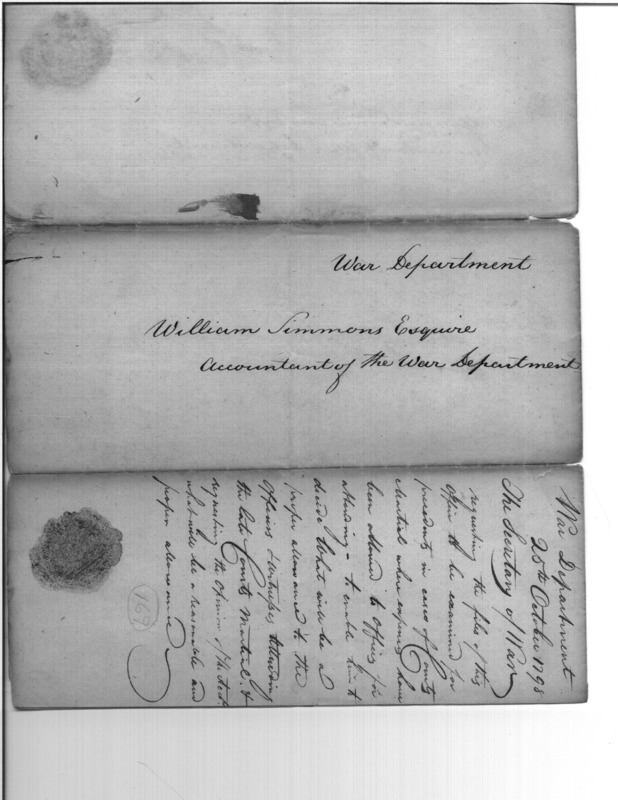 War Department
William Simmons Esquire
Accountant of the War Department
War Department
25th October 1798
The Secretary of War
requesting the files of this
office to be examined for
precedents in cases of Courts
Martial where expences have
been allowed to officers for
attending - to enable him to
decide what will be a
proper allowance to the
officers & witnesses attending
the late Courts Martial. &
requesting the opinion of the Acct.
what will be a reasonable and
proper allowance
167